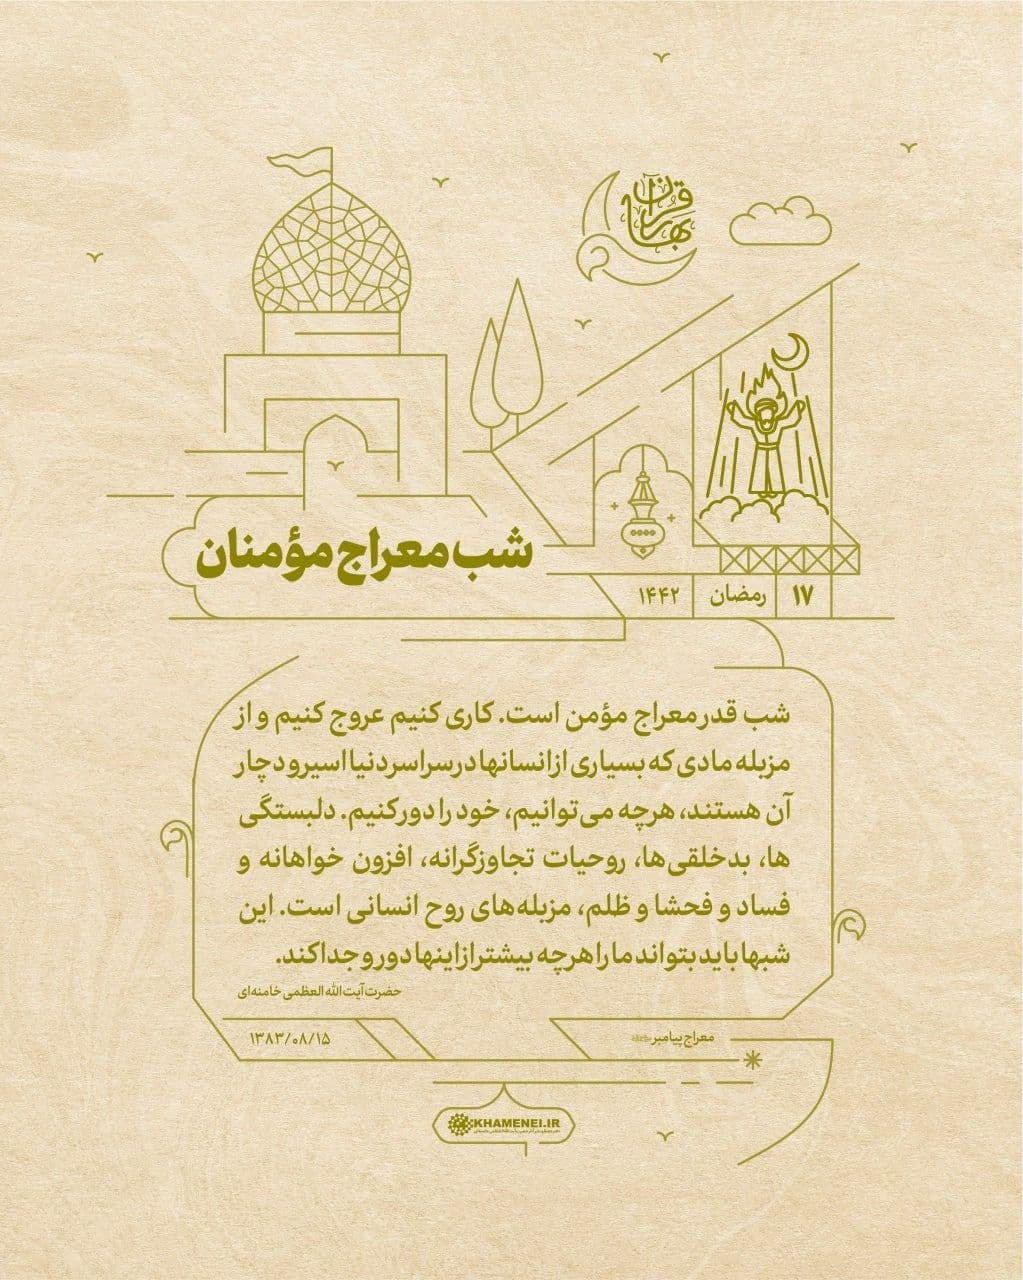 بهار قرآن
شب معراج مؤمنان
۱۷ رمضان ۱۴۴۲
شب قدر معراج مؤمن است. کاری کنیم عروج کنیم و از
مزبله مادی که بسیاری از انسانها در سراسر دنیا اسیر و دچار
آن هستند، هرچه می‌توانیم، خود را دور کنیم. دلبستگی
ها، بدخلقی‌ها، روحیات تجاوزگرانه، افزون خواهانه و
فساد و فحشا و ظلم، مزبله‌های روح انسانی است. این
شبها باید بتواند ما را هرچه بیشتر از اینها دور و جدا کند.
حضرت آیت الله العظمی خامنه‌ای
معراج پیامبر
۱۳۸۳/۰۸/۱۵
KHAMENEI.IR